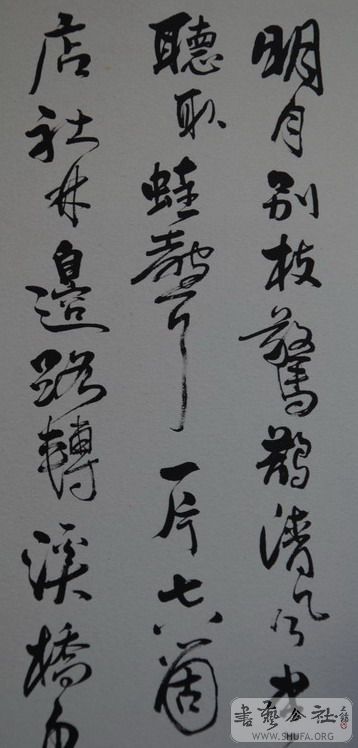 明月別枝驚鵲清風半
聽取蛙聲一片七八箇
店社林邊路轉溪橋
書藝公社
WWW.SHUFA.ORG